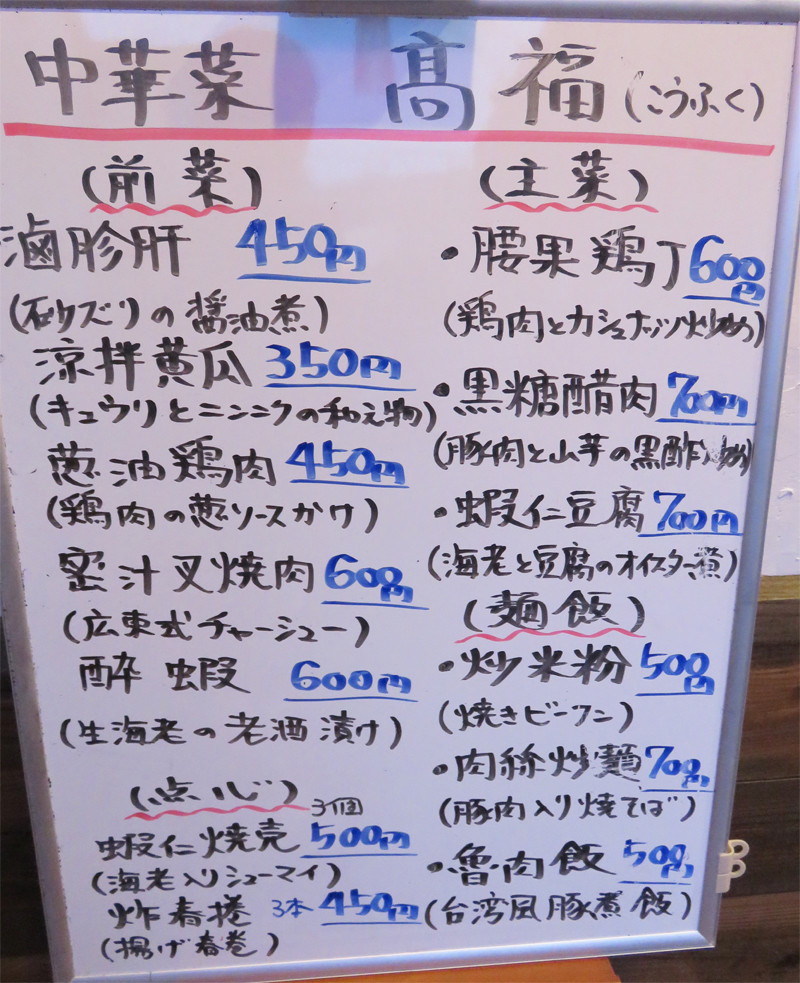 中華菜 髙福(こうふく)
(前菜)
滷胗肝 450円
(砂ズリの醤油煮)
涼拌黄瓜 350円
(キュウリとニンニクの和え物)
葱油鶏肉 450円
(鶏肉の葱ソースかけ)
蜜汁叉焼肉 600円
(広東式チャーシュー)
酔蝦 600円
(生海老の老酒漬け)
(点心)
蝦仁焼売 3個 500円
(海老入りシューマイ)
炸春捲 3本 450円
(揚げ春巻)
(主菜)
・腰果鶏丁 600円
(鶏肉とカシュナッツ炒め)
・黒糖醋肉 700円
(豚肉と山芋の黒酢炒め)
・蝦仁豆腐 700円
(海老と豆腐のオイスター煮)
(麺飯)
・炒米粉 500円
(焼きビーフン)
・肉絲炒麺 700円
(豚肉入り焼そば)
・魯肉飯 500円
(台湾風豚煮飯)